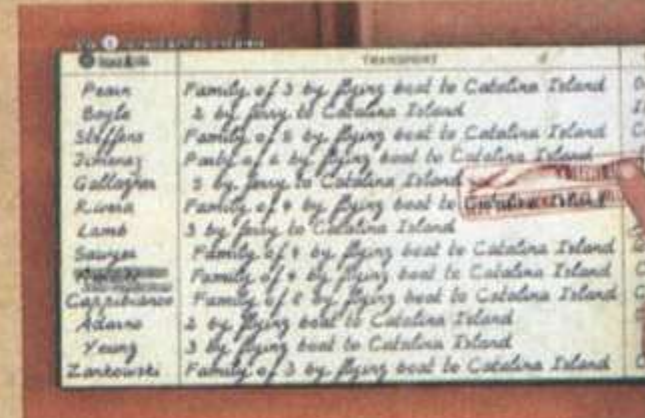 TRANSPORT
Family of 3 by flying boat to Catalina Island
Boyle 2 by ferry to Catalina Island
Steffens Family of 5 by flying boat to Catalina Island
Jimenez Party of 6 by flying boat to Catalina Island
Gallagher 5 by ferry to Catalina Island
Rivera Family of 4 by flying boat to Catalina Island
Lamb 3 by ferry to Catalina Island
Sawyer Family of 4 by flying boat to Catalina Island
Family of 4 by flying boat to Catalina Island
Family of 2 by flying boat to Catalina Island
Adamo 2 by flying boat to Catalina Island
Young 3 by flying boat to Catalina Island
Zankowski Family of 3 by flying boat to Catalina Island